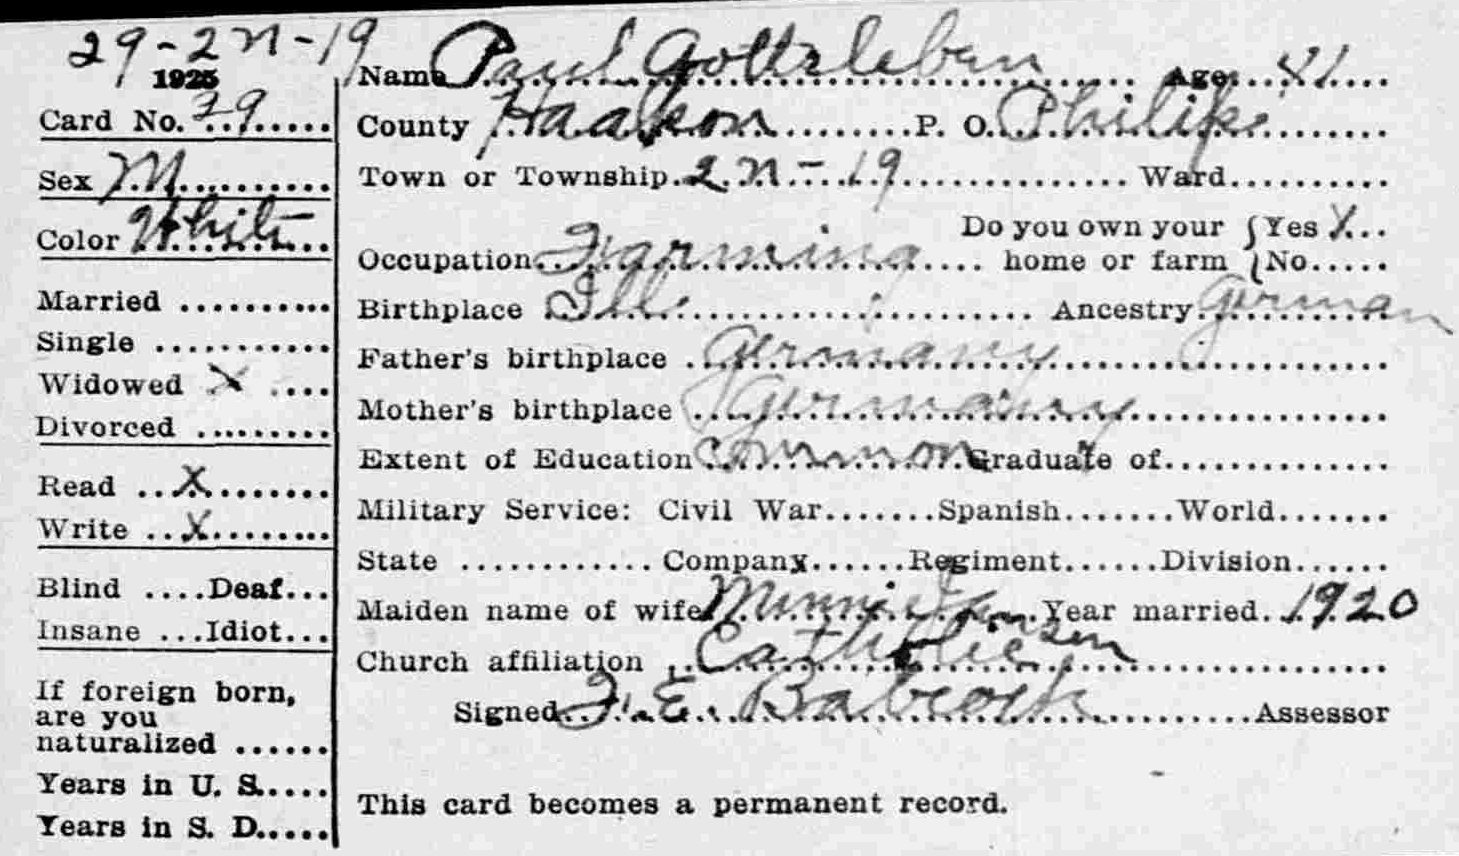 29-2N-19
1925
Card No. 29
Sex M
Color White
Married
Single
Widowed X
Divorced
Read X
Write X
Blind ....Deaf...
Insane ...Idiot...
If foreign born,
are you
naturalized ......
Years in U. S.....
Years in S. D.....
Name Paul Gottsleben Age 41
County Haakon P. O. Philip
Town or Township 2N-19 Ward
Do you own your { Yes X
Occupation Farming home or farm { No
Birthplace Ill. Ancestry German
Father's birthplace Germany
Mother's birthplace Germany
Extent of Education Common Graduate of
Military Service: Civil War.......Spanish.......World.......
State ............ Company......Regiment......Division......
Maiden name of wife Minnie Jensen Year married 1920
Church affiliation Catholic
Signed F. E. Babcock Assessor
This card becomes a permanent record.